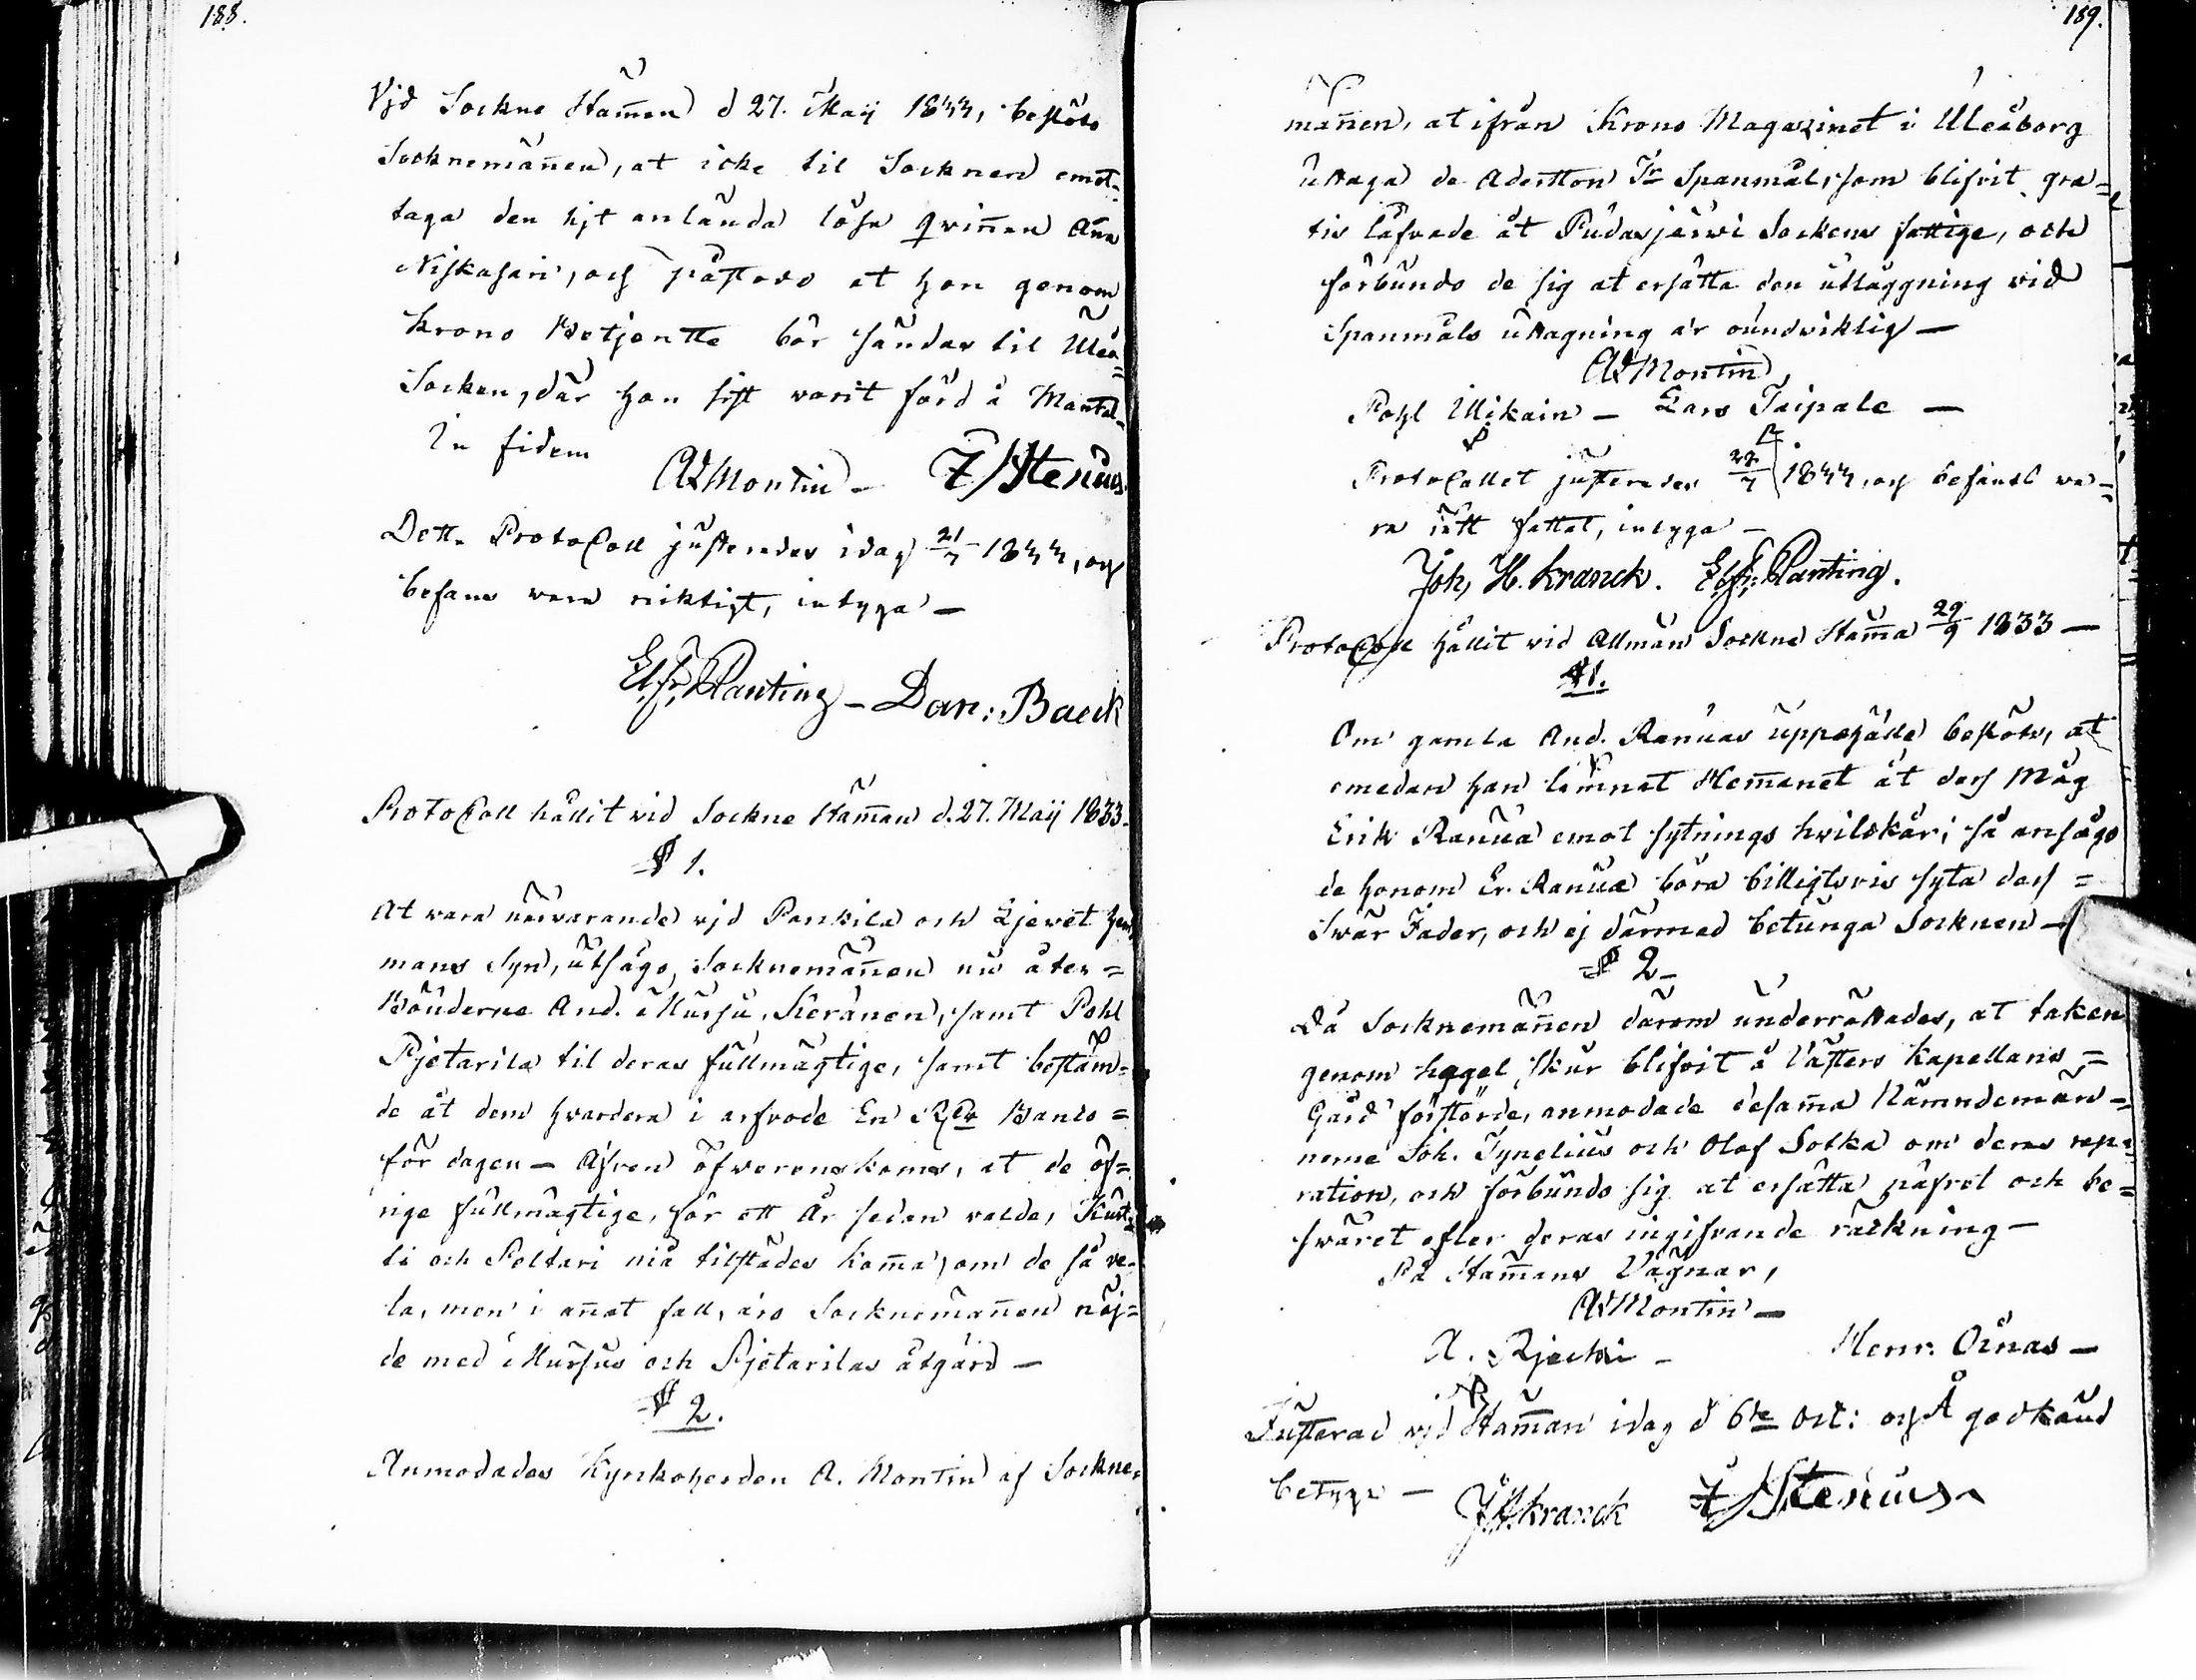 188.
Vid Sockne Stam̄en d 27. Maij 1833, beslöto
Socknemän̄en, at icke til Socknen emot-
taga den hit anlända lösa qvin̄an An̄a
Niskasari, och påstods at hon genom
Krono Betjente bör sändas til Uleå
Socken, där hon sist varit förd i Mantal.
In fidem
A Montin - F/Stenius
Detta Protocoll justerades idag 21/7 1833, och
befans vara riktigt, intyga -
El. Fr. Planting - Dan: Baeck
Protocoll hållit vid Sockne Stam̄an d. 27. Maij 1833.
§ 1.
At vara närvarande vid Pankila och Ljevet hem
mans Syn, utsågo, Socknemän̄en nu åter=
Bönderne And. Mursu, Keränen, samt Pohl
Pjetarila til deras fullmägtige, samt bestäm=
de åt dem hvardera i arfvode En Rbr Banco=
för dagen - Äfven öfverenskoms, at de öf=
rige fullmägtige, för ett År sedan valde, Kurt=
ti och Poltari må tilstädes kom̄a, om de så ve-
la, men i an̄at fall, äro Socknemän̄en nöj=
de med Mursus och Pjetarilas åtgärd -
§ 2.
Anmodades Kyrkoherden A. Montin af Sockne=
189.
män̄en, at ifrån Krono Magazinet i Uleåborg
uttaga de Aderton Tr Spanmål, som blifvit gra=
tis låfvade åt Pudasjärwi Sockens fattige, och
förbundo de sig at ersätta den utläggning vid
Spanmåls uttagning är oundviklig -
A Montin
Pohl Ulikain - Lars Taipale -
Protocollet justerades 22/7 1833, och befants va=
ra rätt fattat, intyga -
Joh, H. Kranck. El. Fr. Planting.
Protocoll hållit vid Allmän Sockne Stam̄a 29/9 1833 -
§ 1.
Om gamla And. Ranuas uppehälle beslöts, at
emedan han lämnat Hem̄anet åt dess Måg
Erik Ranua emot sytnings hvilskår; så ansågo
de honom Er. Ranua böra billigtvis syta dess=
Swär Fader, och ej därmed betunga Socknen -
§ 2 -
Då Socknemän̄en därom underrättades, at taken
genom hagel skur blifvit å Västers Kapellans=
Gård förstörde, anmodade desam̄a Nämndemän-
nerne Joh. Tynelius och Olof Sotka om deras repa=
ration, och förbundo sig at ersätta påfvel och be=
swäret efter deras ingifvande räckning -
På Stam̄ans Vägnar,
A Montin -
A. Rjecki - Henr. Oinas -
Justerad vid Stam̄an idag d 6te Oct: och godkänd
betyga - J. H. Kranck F/Stenius